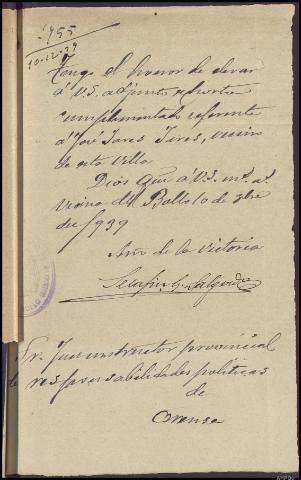 955
10-12-39
Tengo el honor de elevar
á V.S. adjunto exhorto
cumplimentado referente
á José Tares Tires, vecino
de esta Villa
Dios gue á V.S. ms. as.
Viana del Bollo 10 de Dbre
de 1939
Año de la Victoria
Serafín G. Salgado
Sr. Juez instructor provincial
de responsabilidades políticas
de
Orense